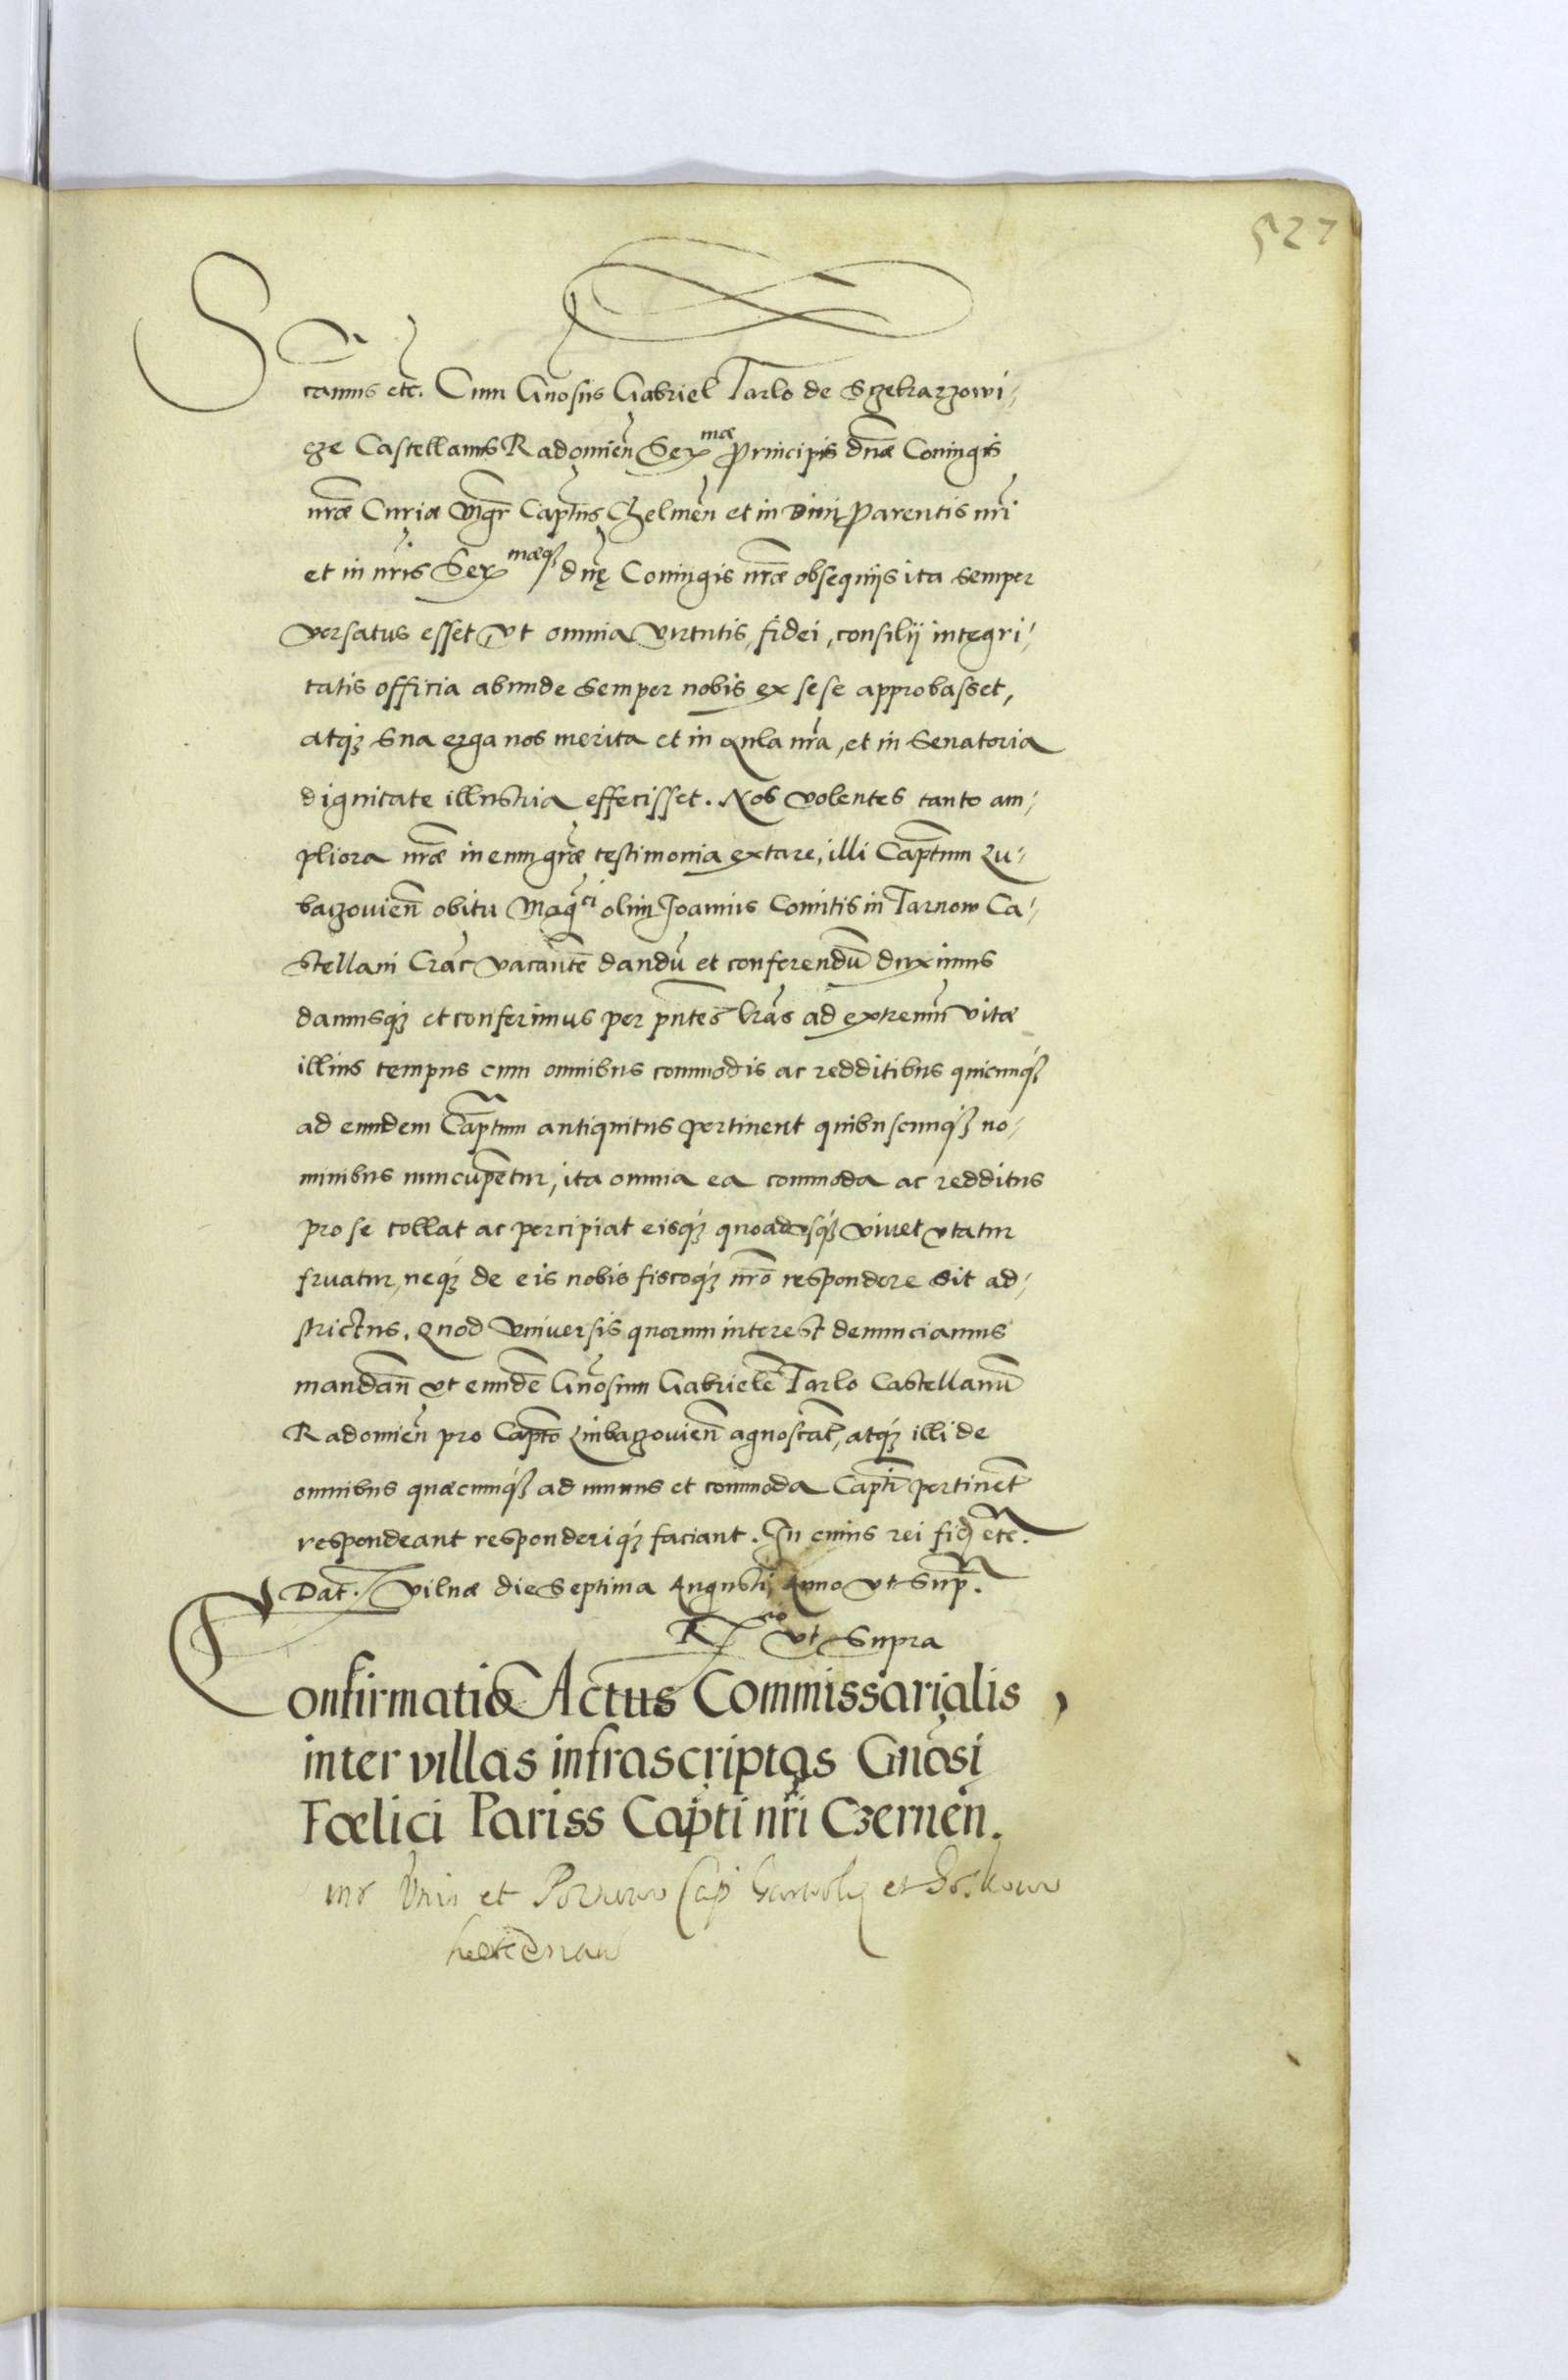 527
camus etc. Cum Gnosus Gabriel Tarlo de Szekarzowi,
cze Castellanus Radomien̄ Serᵐᵃᵉ Principis dnæ Coniugis
nr̄æ Curiæ Mgr̄ Captus Chelmen̄ et in Divi Parentis nr̄i
et in nr̄is Serᵐᵃᵉqȝ dnę Coniugis nr̄æ obsequijs ita semper
versatus esset, vt omnia virtutis, fidei, consilij integri,
tatis officia abunde semper nobis ex sese approbasset,
atqȝ sua erga nos merita et in aula nr̄a, et in Senatoria
dignitate illustria effecisset. Nos volentes tanto am,
pliora nr̄æ in eum gr̄æ testimonia extare, illi Captum Lu,
baczouien̄ obitu Magᶜⁱ olim Joannis Comitis in Tarnow Ca,
stellani Crac̄ vacantē dandū et conferendū duximus
damusqȝ et conferimus per pn̄tes lr̄as ad extremū vitæ
illius tempus cum omnibus commodis ac redditibus quicunqȝ
ad eundem Captum antiquitus pertinent quibuscunqȝ no,
minibus nuncupētur, ita omnia ea commoda ac redditus
pro se tollat ac percipiat eisqȝ quoadusqȝ viuet vtatur
fruatur, neqȝ de eis nobis fiscoqȝ nr̄o respondere sit ad,
strictus. Quod vniuersis quorum interest denunciamus
mandan̄ vt eundē Gnosum Gabrielē Tarlo Castellanū
Radomien̄ pro Capto Lubaczouien̄ agnoscāt, atqȝ illi de
omnibus quæcunqȝ ad munus et commoda Capti pertinēt
respondeant responderiqȝ faciant. In cuius rei fid etc.
Dat. Vilnæ die Septima Augusti Anno vt Supr̄.
Rⁿᵒ vt Supra
Confirmatio Actus Commissarialis,
inter villas infrascriptas Gnosi
Fœlici Pariss Capti nr̄i Czernen̄.
et et